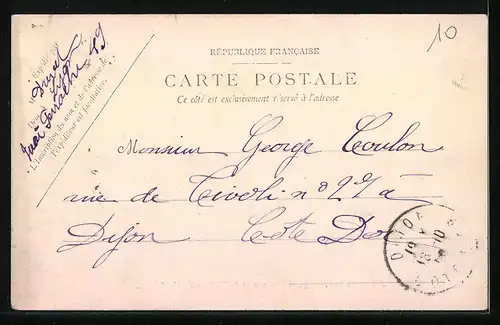 10
RÉPUBLIQUE FRANÇAISE
CARTE POSTALE
Ce côté est exclusivement réservé à l'adresse
L'inscription du nom et de l'adresse de
l'expéditeur est facultative.
Monsieur George Coulon
rue de Tivoli nº 27 à
Dijon Côte Dor
DIJON